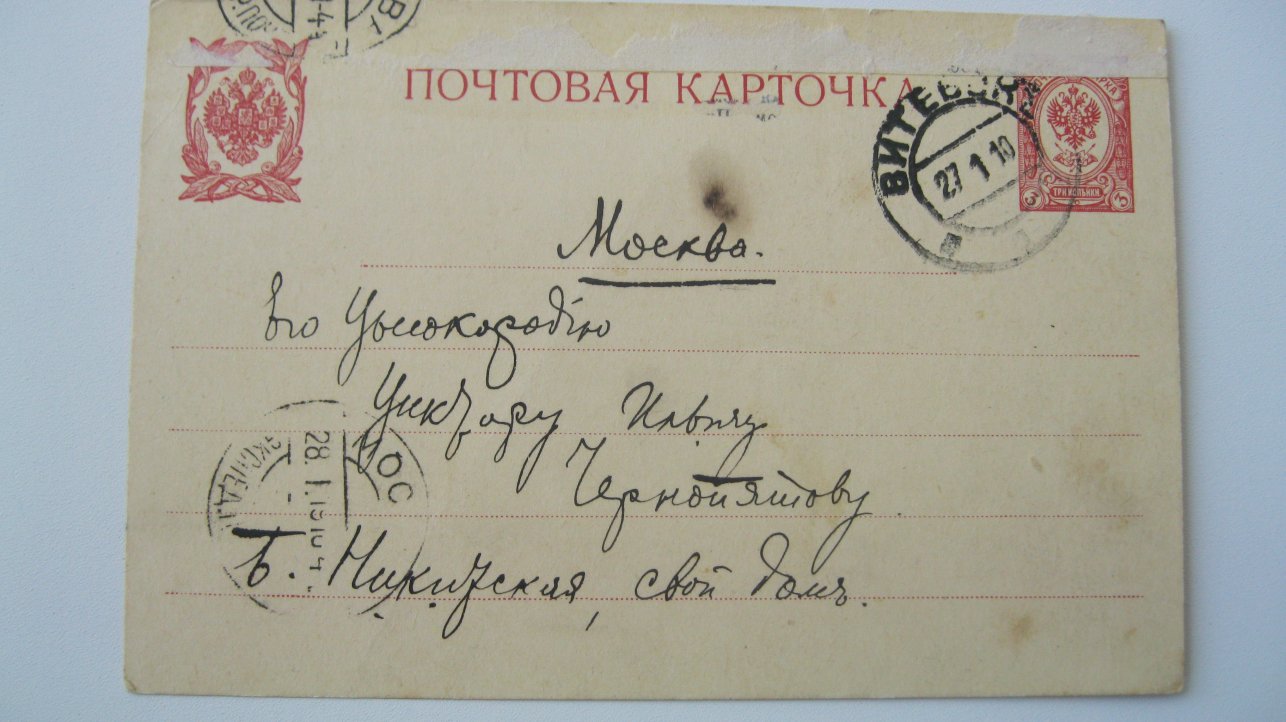 ПОЧТОВАЯ КАРТОЧКА
ВИТЕБСК
27 1 10
ТРИ КОПѢЙКИ
3 3
Москва.
Его Высокородію
Виктору Ильичу
Чернопятову.
Б. Никитская, свой домъ.
МОС
28.1.1910
ЭКСПЕД